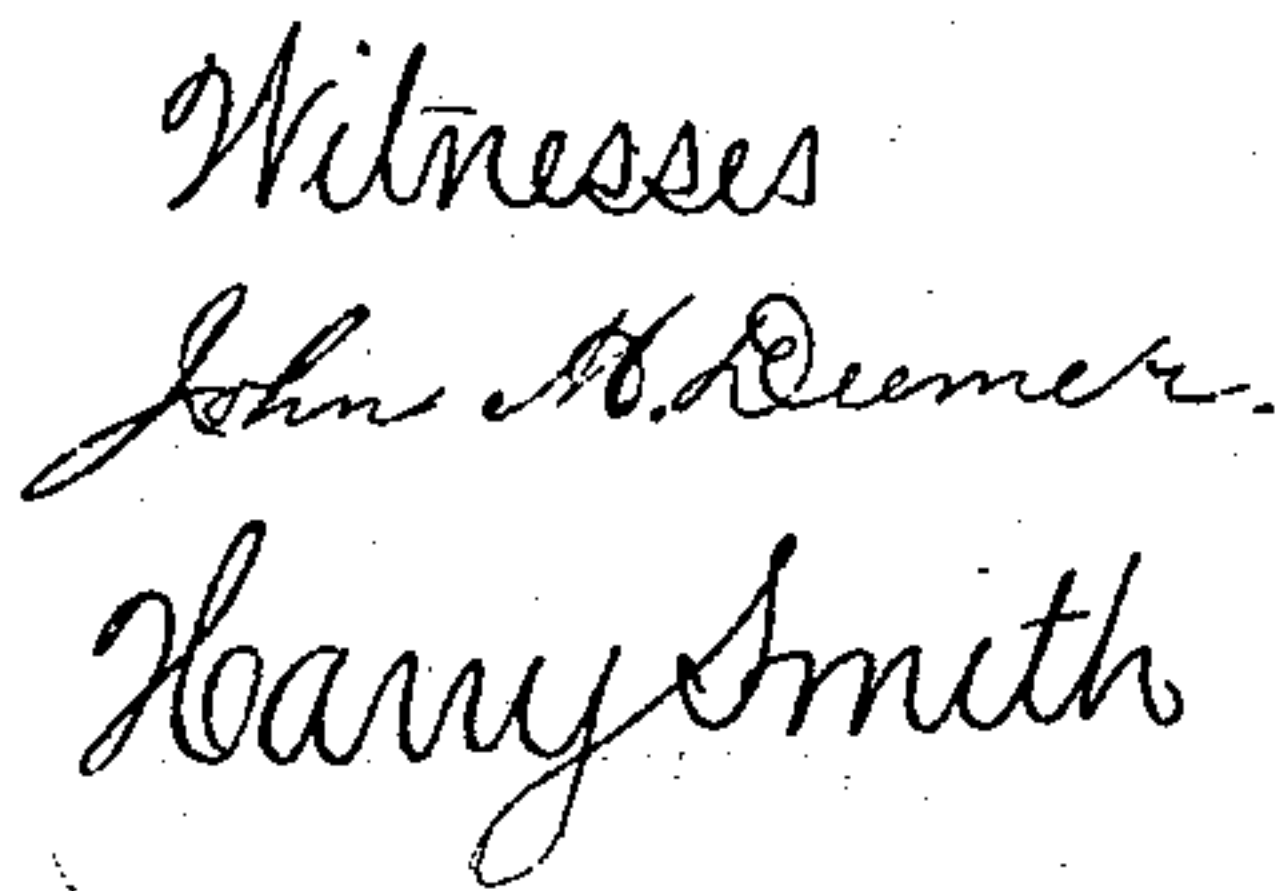 Witnesses
John H. Deemer.
Harry Smith